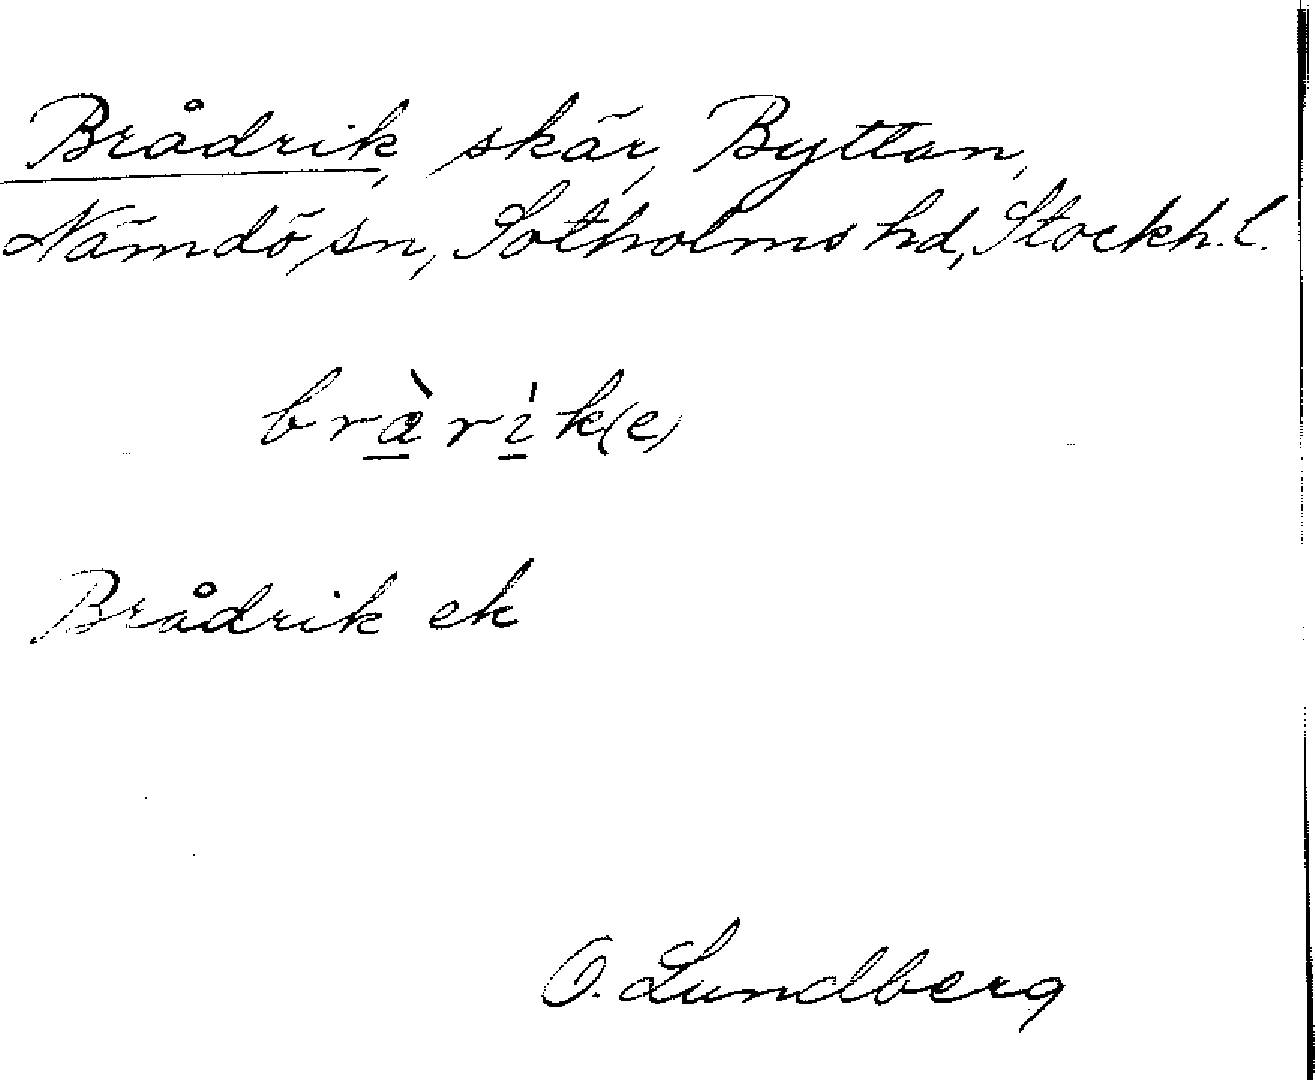 Brådrik, skär, Byttan,
Nämdö sn, Sotholms hd, Stockh. l.
bràrík(e)
Brådrik ek
O. Lundberg